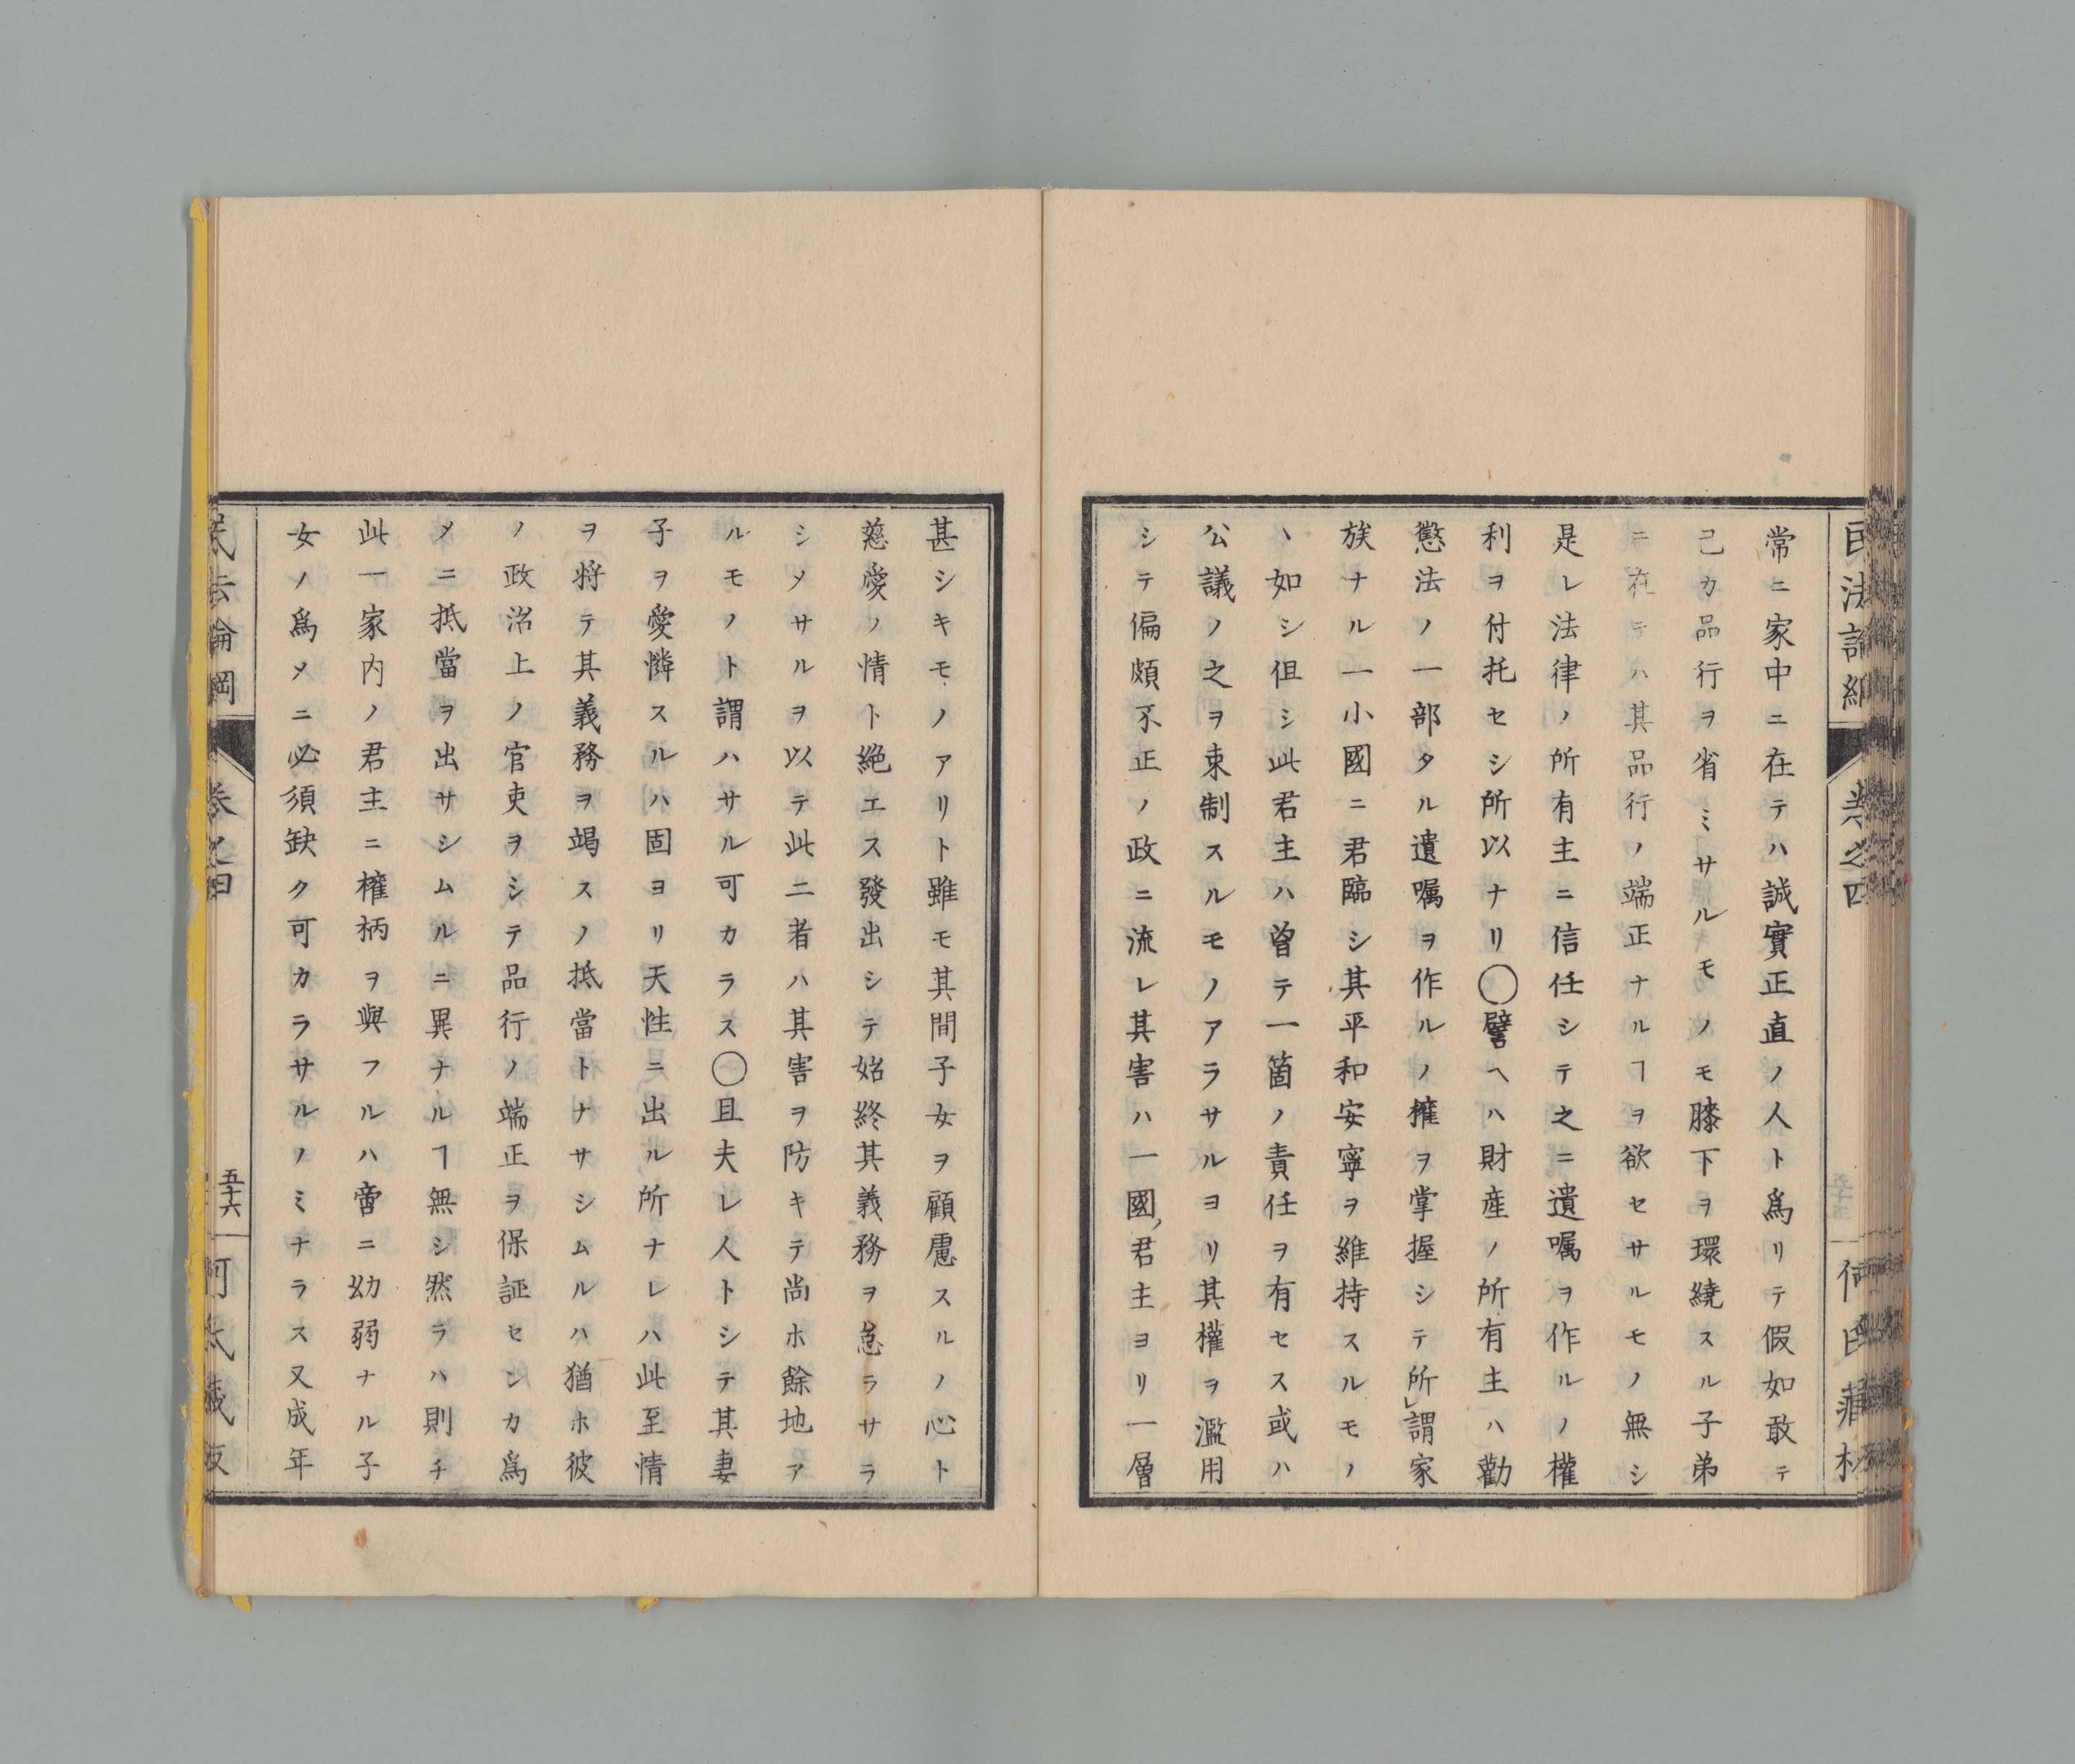 民法論綱
卷之四
何氏藏板
常ニ家中ニ在テハ誠實正直ノ人ト爲リテ假如敢テ
己カ品行ヲ省ミサルモノモ膝下ヲ環繞スル子弟
ニ在テハ其品行ノ端正ナルヿヲ欲セサルモノ無シ
是レ法律ノ所有主ニ信任シテ之ニ遺囑ヲ作ルノ權
利ヲ付托セシ所以ナリ◯譬ヘハ財産ノ所有主ハ勸
懲法ノ一部タル遺囑ヲ作ルノ權ヲ掌握シテ所謂家
族ナル一小國ニ君臨シ其平和安寧ヲ維持スルモノ
ヽ如シ但シ此君主ハ曾テ一箇ノ責任ヲ有セス或ハ
公議ノ之ヲ束制スルモノアラサルヨリ其權ヲ濫用
シテ偏頗不正ノ政ニ流レ其害ハ一國君主ヨリ一層
甚シキモノアリト雖モ其間子女ヲ顧慮スルノ心ト
慈愛ノ情ト絶エス發出シテ始終其義務ヲ怠ラサラ
シメサルヲ以テ此二者ハ其害ヲ防キテ尚ホ餘地ア
ルモノト謂ハサル可カラス◯且夫レ人トシテ其妻
子ヲ愛憐スルハ固ヨリ天性ニ出ル所ナレハ此至情
ヲ將テ其義務ヲ竭スノ抵當トナサシムルハ猶ホ彼
ノ政治上ノ官吏ヲシテ品行ノ端正ヲ保証センカ爲
メニ抵當ヲ出サシムルニ異ナルヿ無シ然ラハ則チ
此一家内ノ君主ニ權柄ヲ與フルハ啻ニ幼弱ナル子
女ノ爲メニ必須缺ク可カラサルノミナラス又成年
民法論綱
卷之四
五十六
何氏藏板